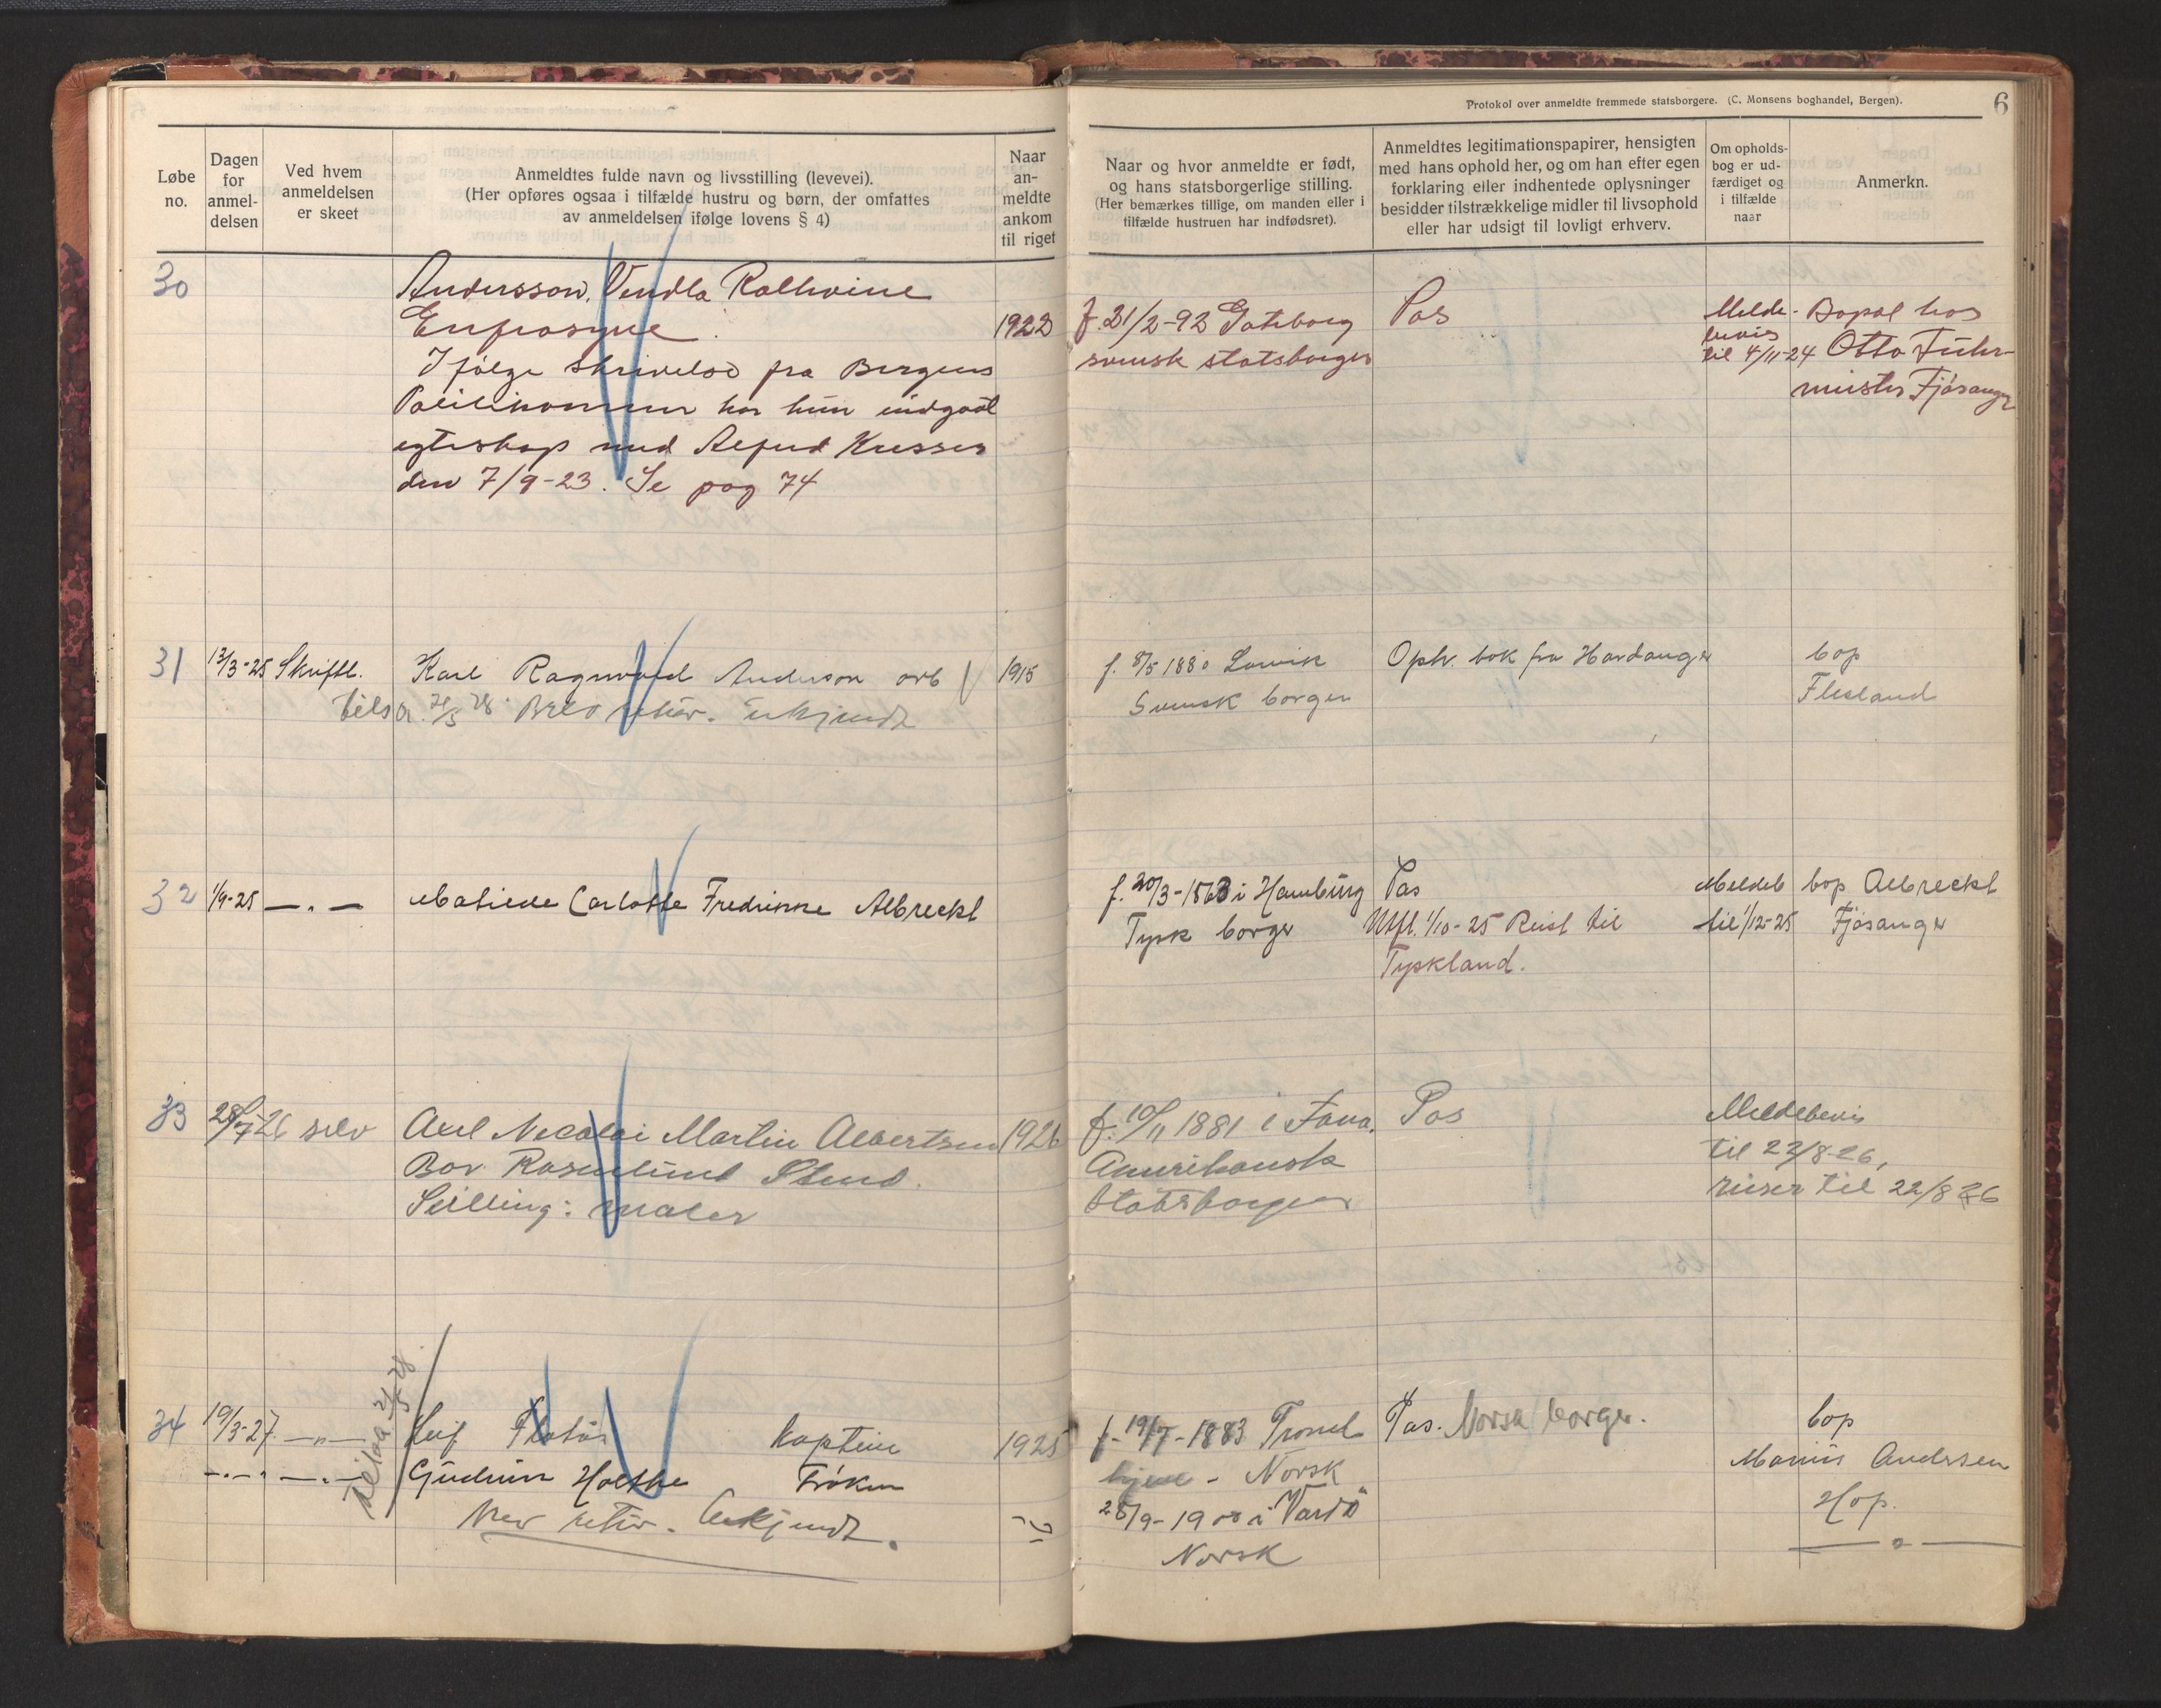 Løbe no.
Dagen for anmel- delsen
Ved hvem anmeldelsen er skeet
Anmeldtes fulde navn og livsstilling (levevei).
(Her opføres ogsaa i tilfælde hustru og børn, der omfattes
av anmeldelsen ifølge lovens § 4)
Naar an- meldte ankom til riget
30
Andersson, Vendla
1922
I følge skrivelse fra Bergens
har hun indgaat
egteskap med Alfred
den 7/9-23. Se pag 74
31 13/3-25 Skriftl. Karl Ragnvald Anderson arb 1915
Brev retur. Erkjendt
32 1/9-25 — " — Carlotte Albreckt
33 28/7 26 selv Axel Nicolai Martin Albertsen 1926
Bor Stend.
Stilling: maler
34 19/3-27 — " — Leif kaptein 1925
— " — — " — Gudrun Holthe Frøken
Brev retur. Erkjendt.
Protokol over anmeldte fremmede statsborgere. (C. Monsens boghandel, Bergen).
6
Naar og hvor anmeldte er født,
og hans statsborgerlige stilling.
(Her bemærkes tillige, om manden eller i
tilfælde hustruen har indfødsret).
Anmeldtes legitimationspapirer, hensigten
med hans ophold her, og om han efter egen
forklaring eller indhentede oplysninger
besidder tilstrækkelige midler til livsophold
eller har udsigt til lovligt erhverv.
Om opholds- bog er ud- færdiget og i tilfælde naar
Anmerkn.
f. 21/2-92 Gøteborg Pas Melde- Bopæl hos
bevis
svensk statsborger til 4/11-24 Otto Führ-
mester Fjøsanger
f. 8/5 1880 Oph. bok fra Hardanger bop
Svensk borger Flesland
f. 20/3-1863 i Hamburg Pas Meldeb bop Albreckt
Tysk borger Utfl. 1/10-25 Reist til til 1/12-25 Fjøsanger
Tyskland.
f. 10/11 1881 i Fana. Pas Meldebevis
Amerikansk til 22/8-26,
Statsborger reiser til 22/8 26
f. 19/7-1883 Trond- Pas. Norsk borger. bop
hjem - Norsk Marius Andersen
28/9-1900 i Vardø Hop.
Norsk — " —